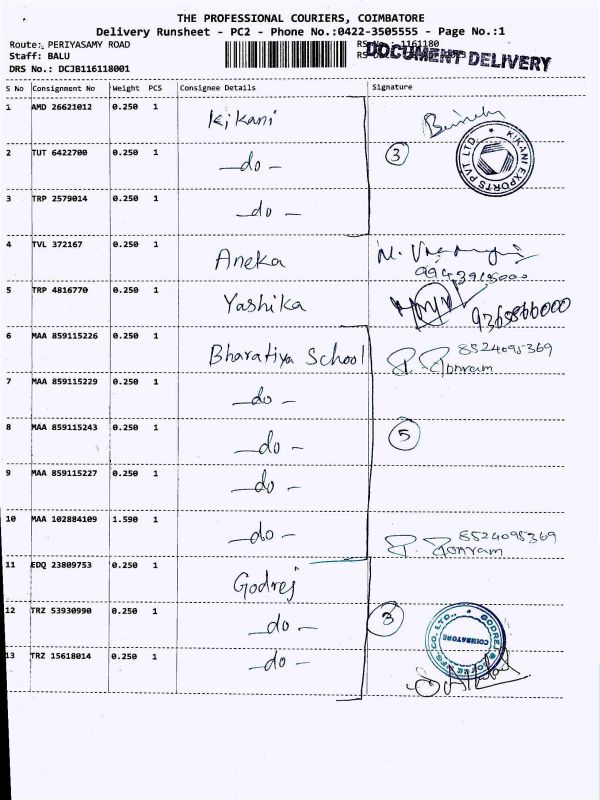 THE PROFESSIONAL COURIERS, COIMBATORE
Delivery Runsheet - PC2 - Phone No.:0422-3505555 - Page No.:1
Route: PERIYASAMY ROAD
RS No. : 1161180
Staff: BALU
DOCUMENT DELIVERY
DRS No.: DCJB116118001
S No Consignment No Weight PCS Consignee Details Signature
1 AMD 26621012 0.250 1 Kikani
KIKANI EXPORTS PVT LTD.
2 TUT 6422700 0.250 1 -do- 3
3 TRP 2579014 0.250 1 -do-
4 TVL 372167 0.250 1 Aneka
5 TRP 4816770 0.250 1 Yashika 9365866000
6 MAA 859115226 0.250 1 Bharatiya School 8524095369
P. Ronram
7 MAA 859115229 0.250 1 -do-
8 MAA 859115243 0.250 1 -do- 5
9 MAA 859115227 0.250 1 -do-
10 MAA 102884109 1.590 1 -do- 8524095369
P. Ronram
11 EDQ 23809753 0.250 1 Godrej
12 TRZ 53930990 0.250 1 -do- 3
COIMBATORE
13 TRZ 15618014 0.250 1 -do-